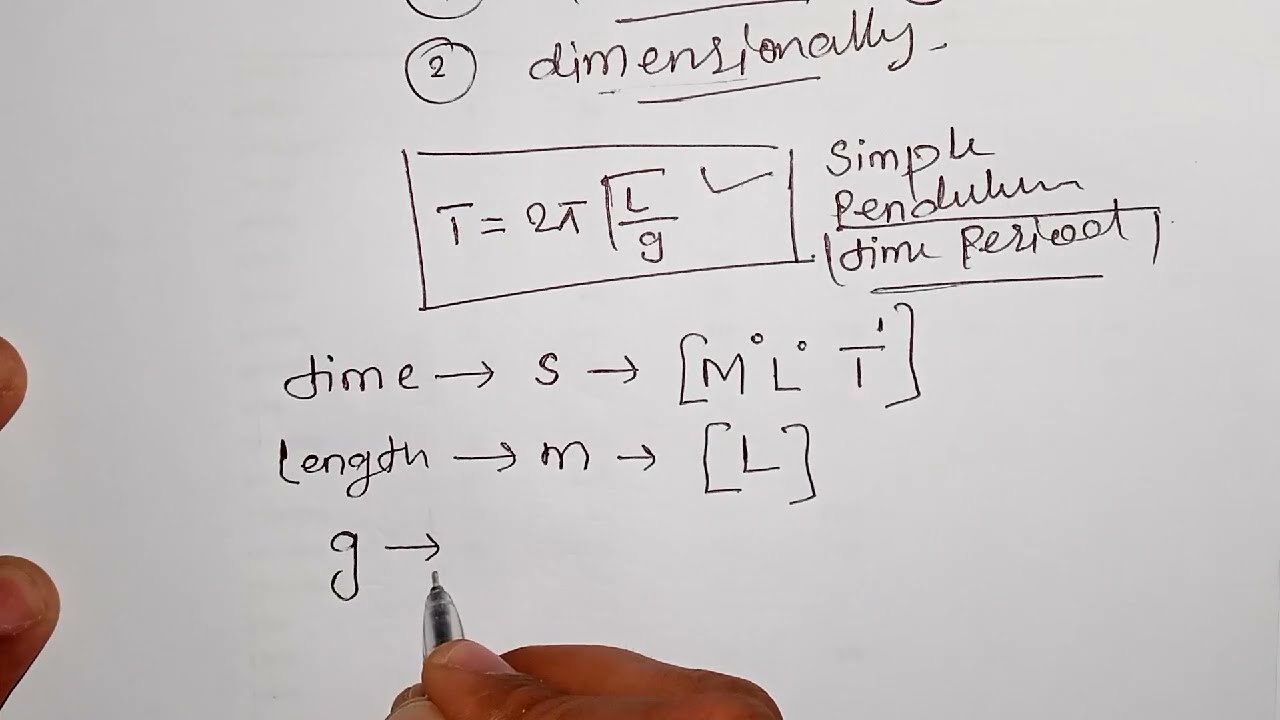 ② dimensionally.
T = 2π √(L/g) ✓
Simple
Pendulum
(time Period)
time → s → [M° L° T¹]
length → m → [L]
g →